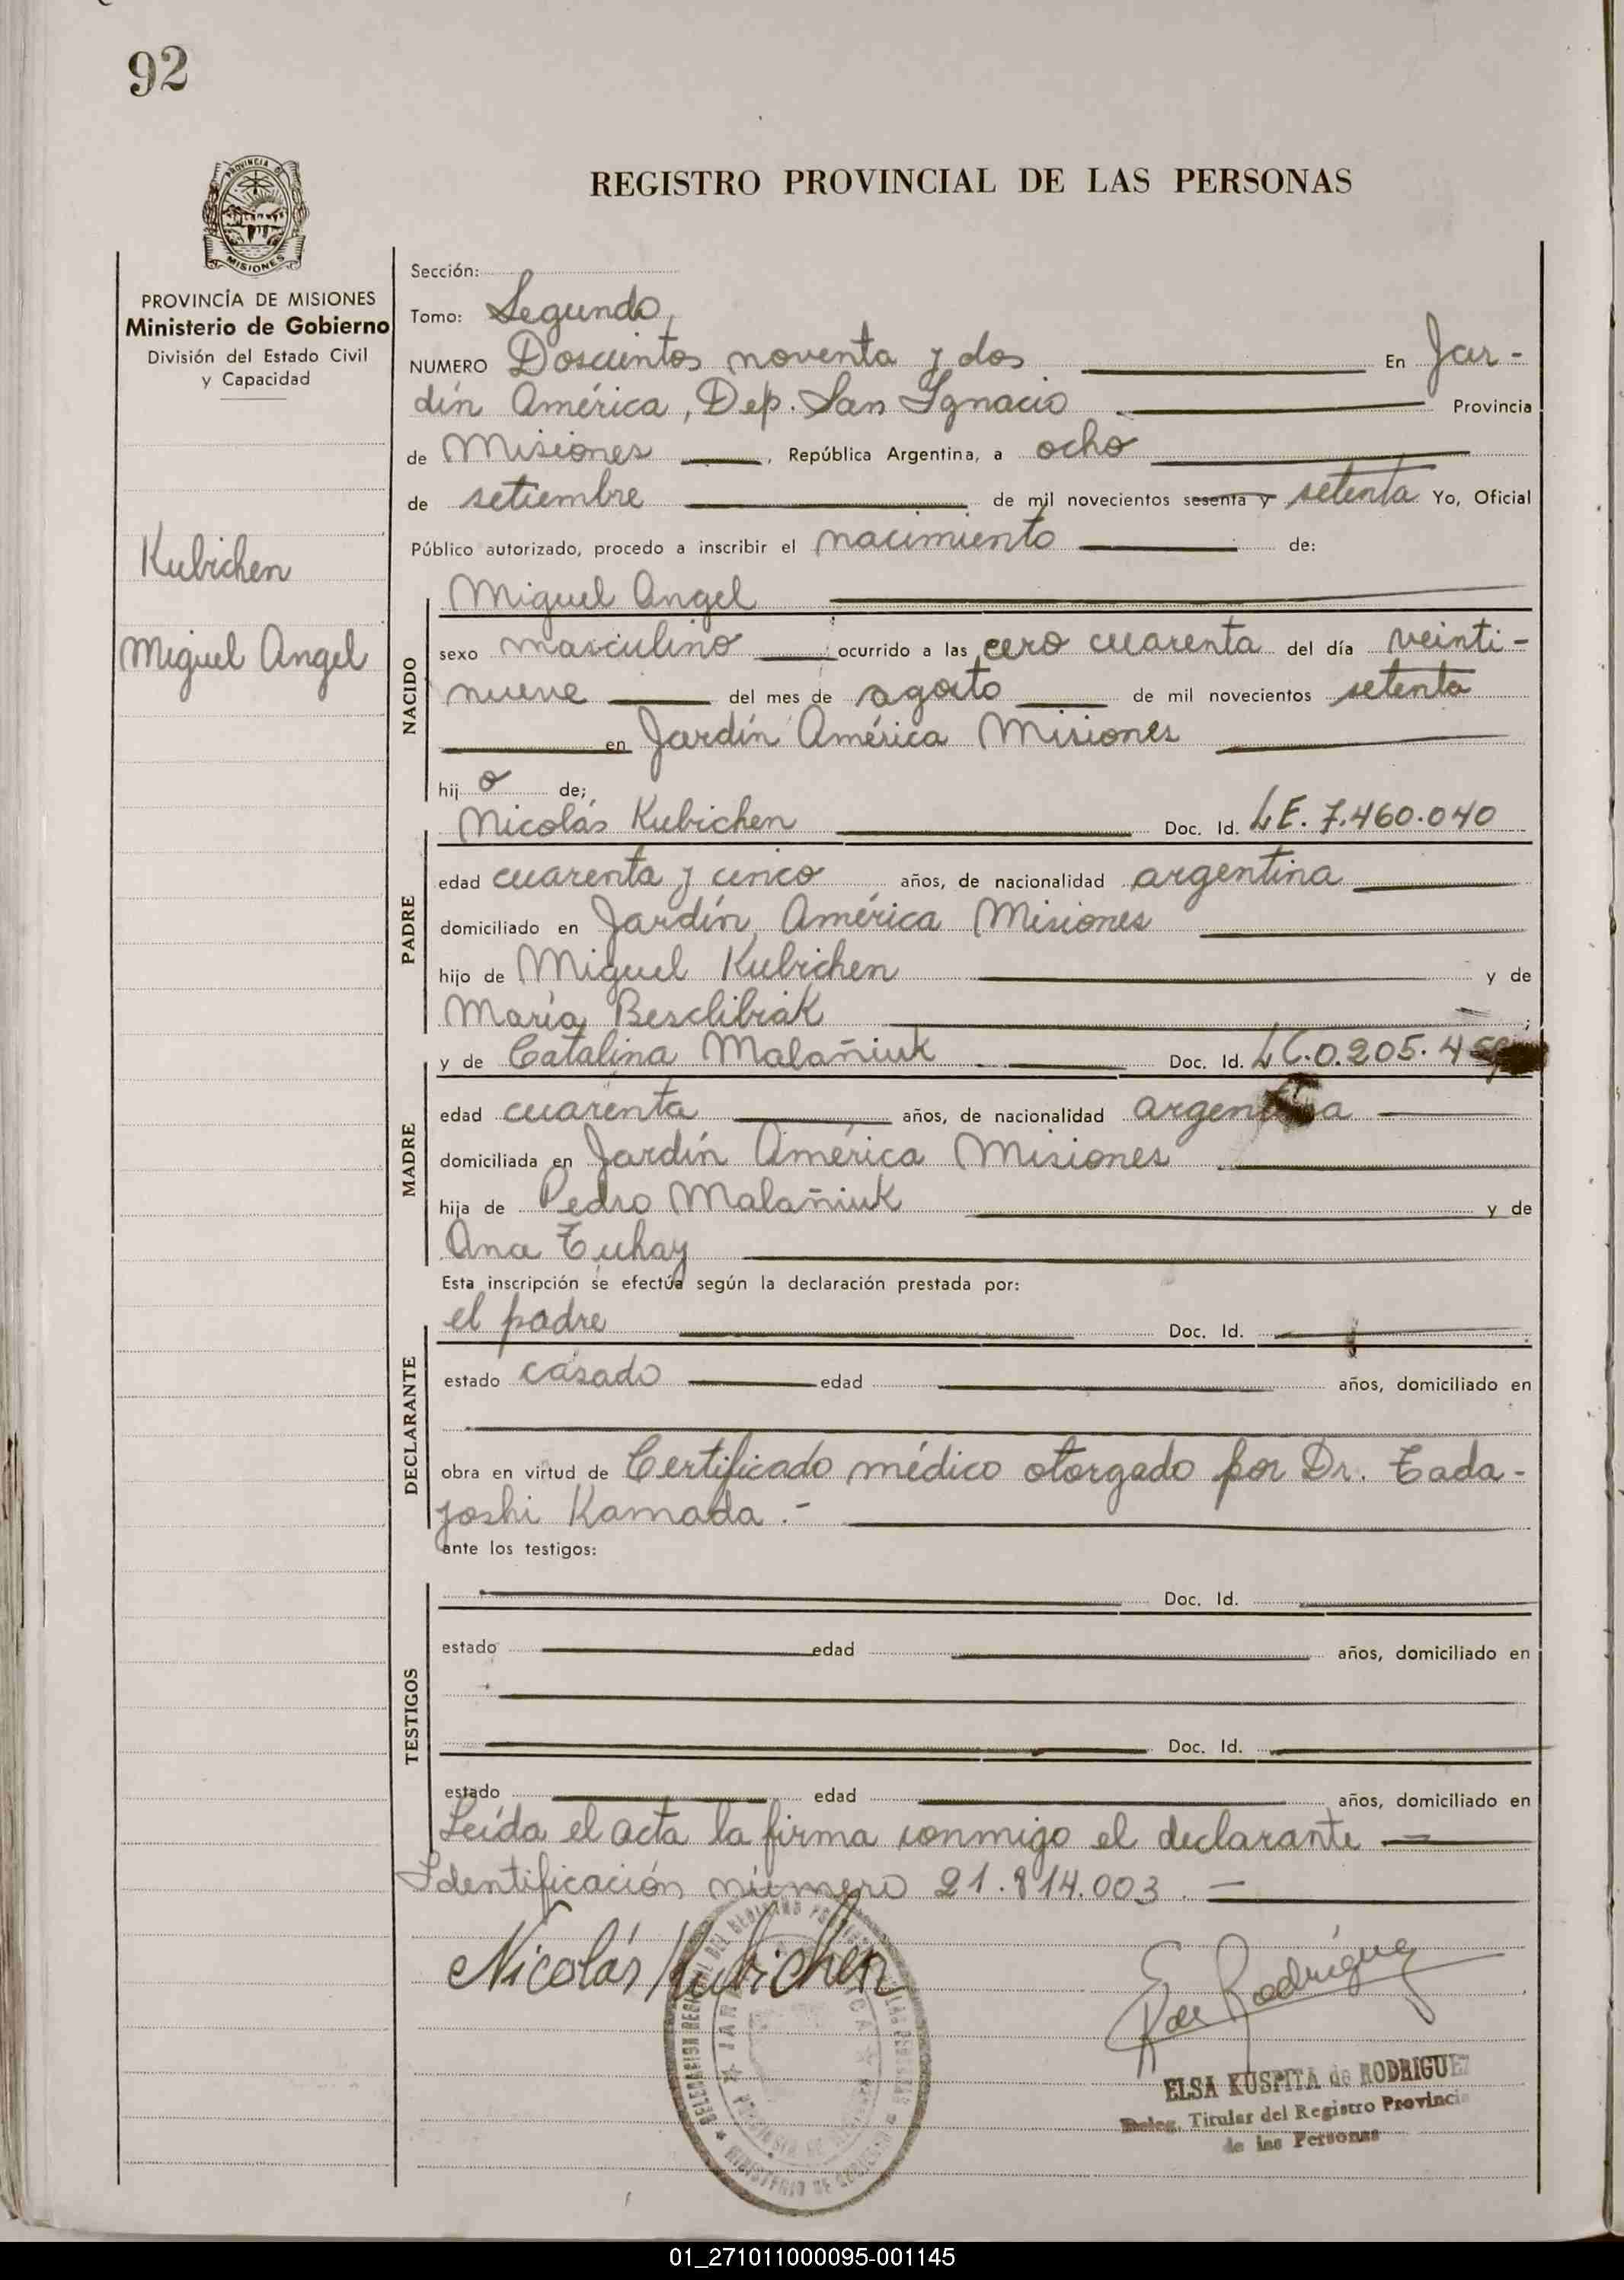 92
PROVINCIA DE
MISIONES
PROVINCÍA DE MISIONES
Ministerio de Gobierno
División del Estado Civil
y Capacidad
Kubichen
Miguel Angel
REGISTRO PROVINCIAL DE LAS PERSONAS
Sección:
Tomo: Segundo
NUMERO Doscientos noventa y dos En Jar-
dín América, Dep. San Ignacio Provincia
de Misiones, República Argentina, a ocho
de setiembre de mil novecientos sesenta y setenta Yo, Oficial
Público autorizado, procedo a inscribir el nacimiento de:
NACIDO
Miguel Angel
sexo masculino ocurrido a las cero cuarenta del día veinti-
nueve del mes de agosto de mil novecientos setenta
en Jardín América Misiones
hij o de;
PADRE
Nicolás Kubichen Doc. Id. LE. 7.460.040
edad cuarenta y cinco años, de nacionalidad argentina
domiciliado en Jardín América Misiones
hijo de Miguel Kubichen y de
María Besclibiak;
MADRE
y de Catalina Malañiuk Doc. Id. LC.0.205.4
edad cuarenta años, de nacionalidad argentina
domiciliada en Jardín América Misiones
hija de Pedro Malañiuk y de
Ana Tuhay
Esta inscripción se efectúa según la declaración prestada por:
DECLARANTE
el padre Doc. Id.
estado casado edad años, domiciliado en
obra en virtud de Certificado médico otorgado por Dr. Tada-
joshi Kamada.-
ante los testigos:
TESTIGOS
Doc. Id.
estado edad años, domiciliado en
Doc. Id.
estado edad años, domiciliado en
Leída el acta la firma conmigo el declarante
Identificación número 21.814.003.
Nicolás Kubichen
Rodríguez
ELSA KUSPITA de RODRIGUEZ
Deleg. Titular del Registro Provincial
de las Personas
01_271011000095-001145